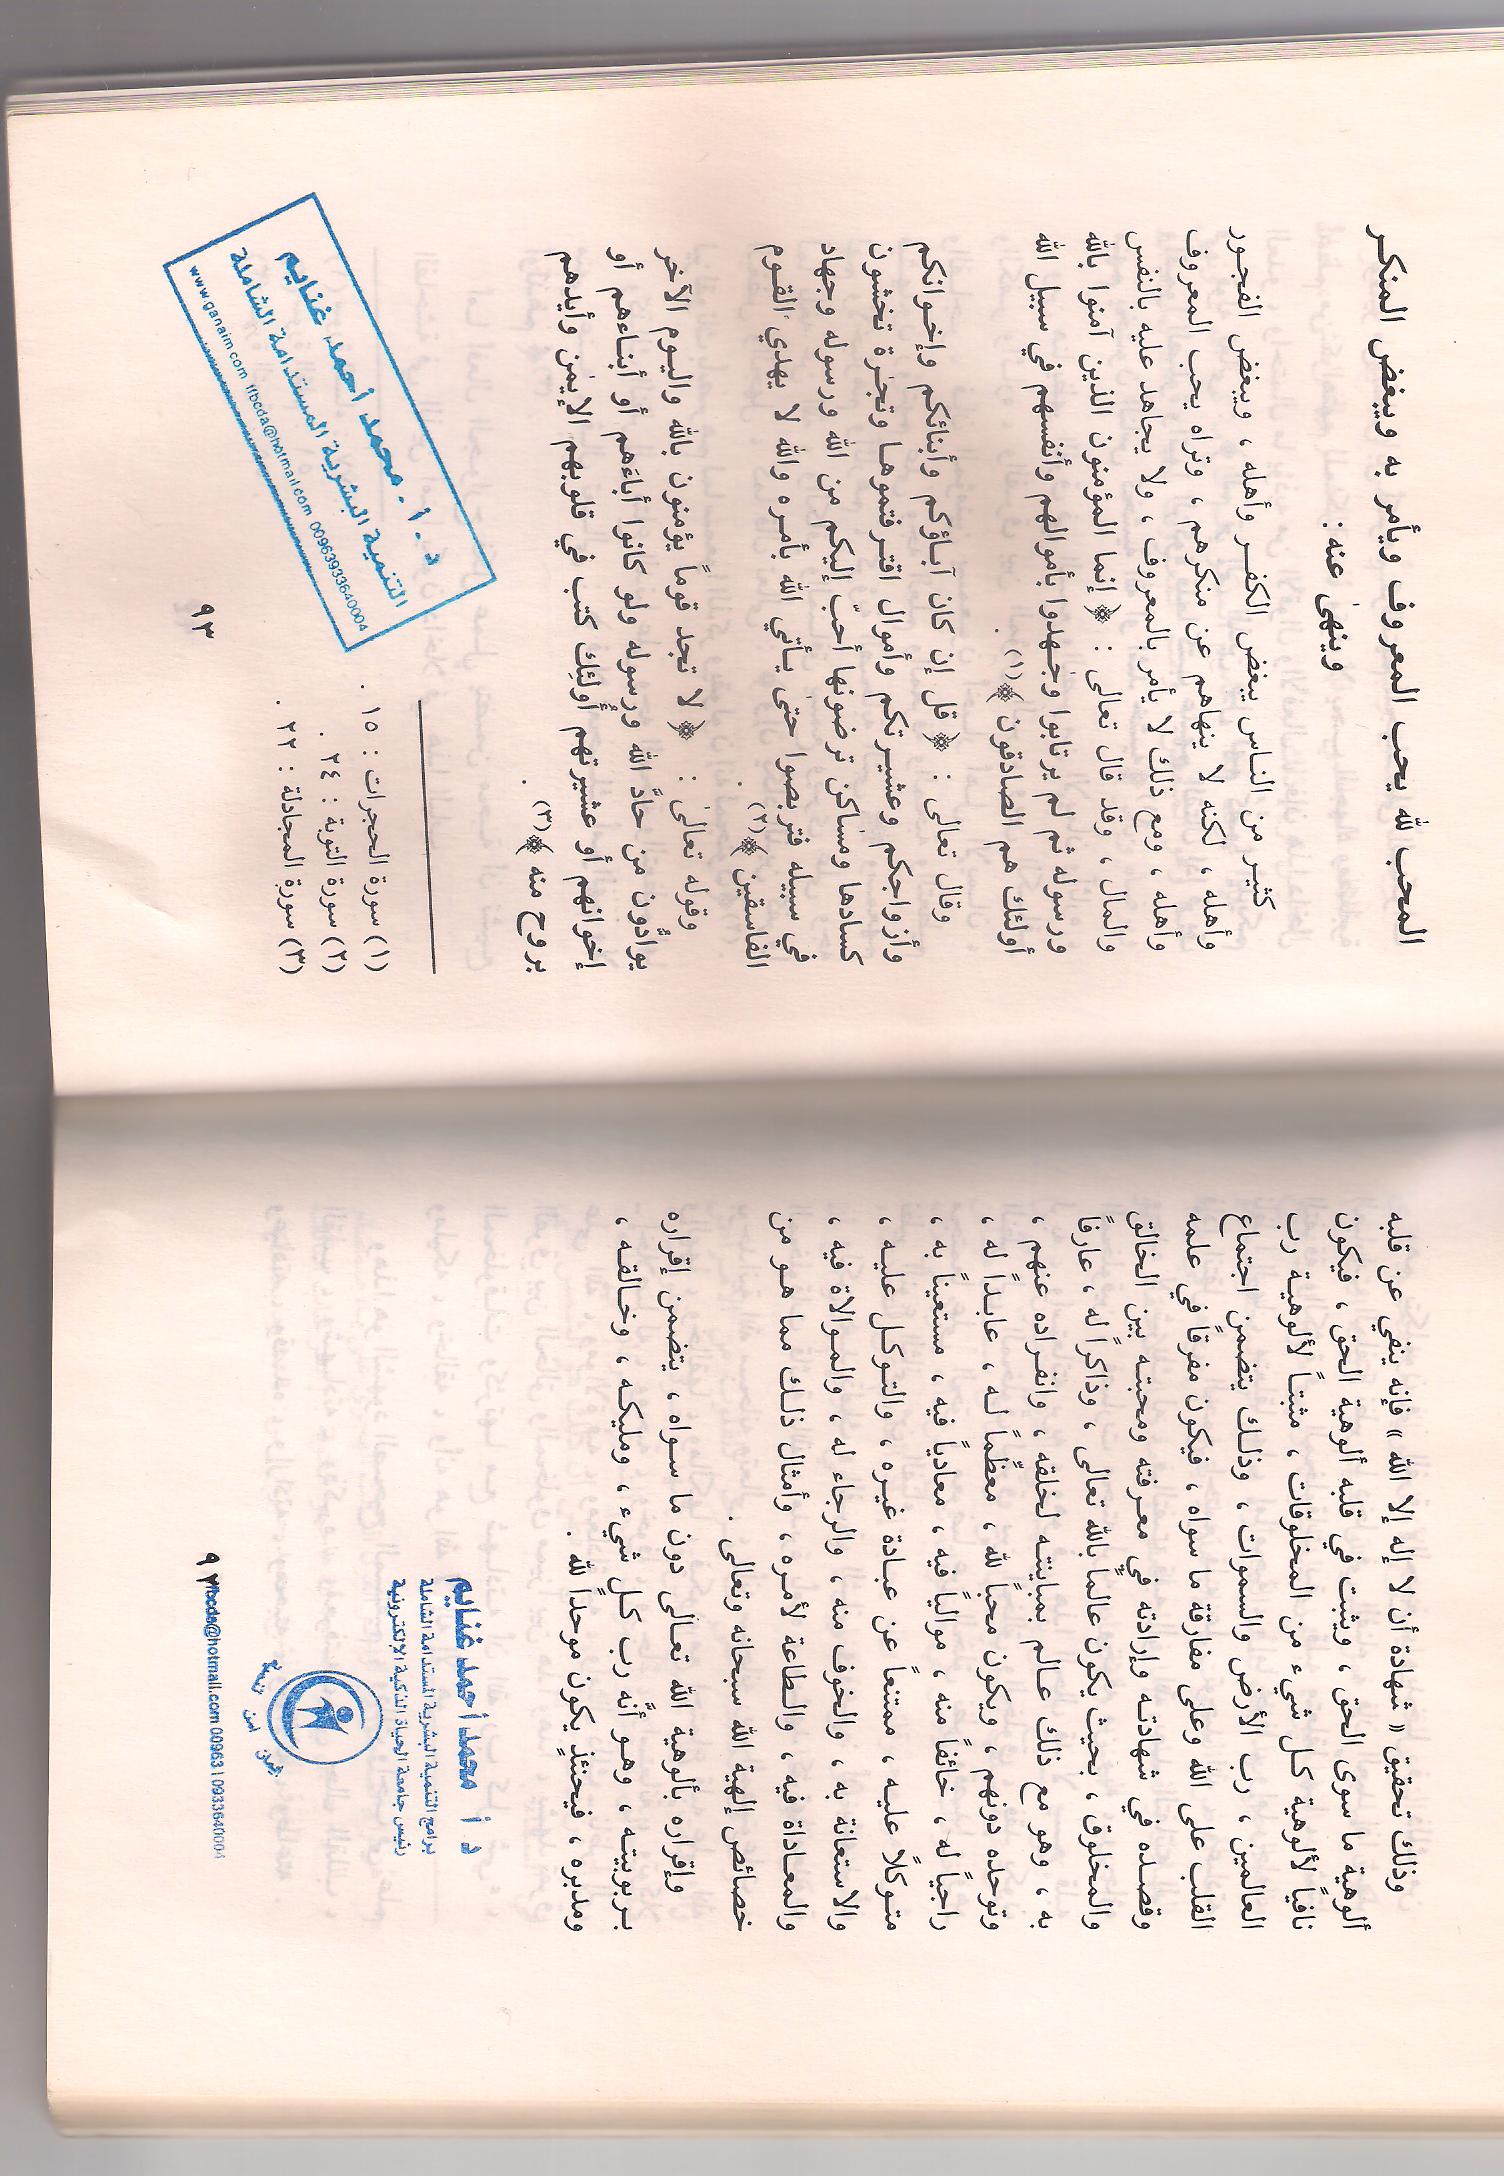 وذلك تحقيق « شهادة أن لا إله إلا الله » فإنه ينفي عن قلبه
ألوهية ما سوى الحق ، ويثبت في قلبه ألوهية الحق ، فيكون
نافياً لألوهية كل شيء من المخلوقات ، مثبتاً لألوهية رب
العالمين ، رب الأرض والسموات ، وذلك يتضمن اجتماع
القلب على الله وعلى مفارقة ما سواه ، فيكون مفرقاً في علمه
وقصده في شهادته وإرادته في معرفته ومحبته بين الخالق
والمخلوق ، بحيث يكون عالماً بالله تعالى ، وذاكراً له ، عارفاً
به ، وهو مع ذلك عالم بمباينته لخلقه ، وانفراده عنهم ،
وتوحده دونهم ، ويكون محباً لله ، معظماً له ، عابداً له ،
راجياً له ، خائفاً منه ، موالياً فيه ، معادياً فيه ، مستعيناً به ،
متوكلاً عليه ، ممتنعاً عن عبادة غيره ، والتوكل عليه ،
والاستعانة به ، والخوف منه ، والرجاء له ، والموالاة فيه ،
والمعاداة فيه ، والطاعة لأمره ، وأمثال ذلك مما هو من
خصائص إلهية الله سبحانه وتعالى .
وإقراره بألوهية الله تعالى دون ما سواه ، يتضمن إقراره
بربوبيته ، وهو أنَّه رب كل شيء ، ومليكه ، وخالقه ،
ومدبره ، فيحنئذٍ يكون موحداً لله .
د أ محمد أحمد غنايم
برامج التنمية البشرية المستدامة الشاملة
رئيس جامعة الحياة الذكية الإلكترونية
ffbcda@hotmail.com 00963 | 0933640004
المحب لله يحب المعروف ويأمر به ويبغض المنكر
وينهىٰ عنه :
كثير من الناس يبغض الكفر وأهله ، ويبغض الفجور
وأهله ، لكنه لا ينهاهم عن منكرهم ، وتراه يحب المعروف
وأهله ، ومع ذلك لا يأمر بالمعروف ، ولا يجاهد عليه بالنفس
والمال ، وقد قال تعالى : ﴿ إنما المؤمنون الذين آمنوا بالله
ورسوله ثم لم يرتابوا وجٰهدوا بأموالهم وأنفسهم في سبيل الله
أولئك هم الصادقون ﴾(١) .
وقال تعالى : ﴿ قل إن كان آباؤكم وأبنائكم وإخوانكم
وأزواجكم وعشيرتكم وأموال اقترفتموها وتجٰرة تخشون
كسادها ومسٰكن ترضونها أحبّ إليكم من الله ورسوله وجهاد
في سبيله فتربصوا حتىٰ يأتي الله بأمره والله لا يهدي القوم
الفاسقين ﴾(٢) .
وقوله تعالىٰ : ﴿ لا تجد قوماً يؤمنون بالله واليوم الآخر
يوادُّون من حادَّ الله ورسوله ولو كانوا أباءَهم أو أبناءهم أو
إخوانهم أو عشيرتهم أُولٰئك كتب في قلوبهم الإيمٰن وأيدهم
بروح منه ﴾(٣) .
(١) سورة الحجرات : ١٥ .
(٢) سورة التوبة : ٢٤ .
(٣) سورة المجادلة : ٢٢ .
٩٣
د . أ . محمد أحمد غنايم
التنمية البشرية المستدامة الشاملة
www.ganaim.com ffbcda@hotmail.com 00963933640004